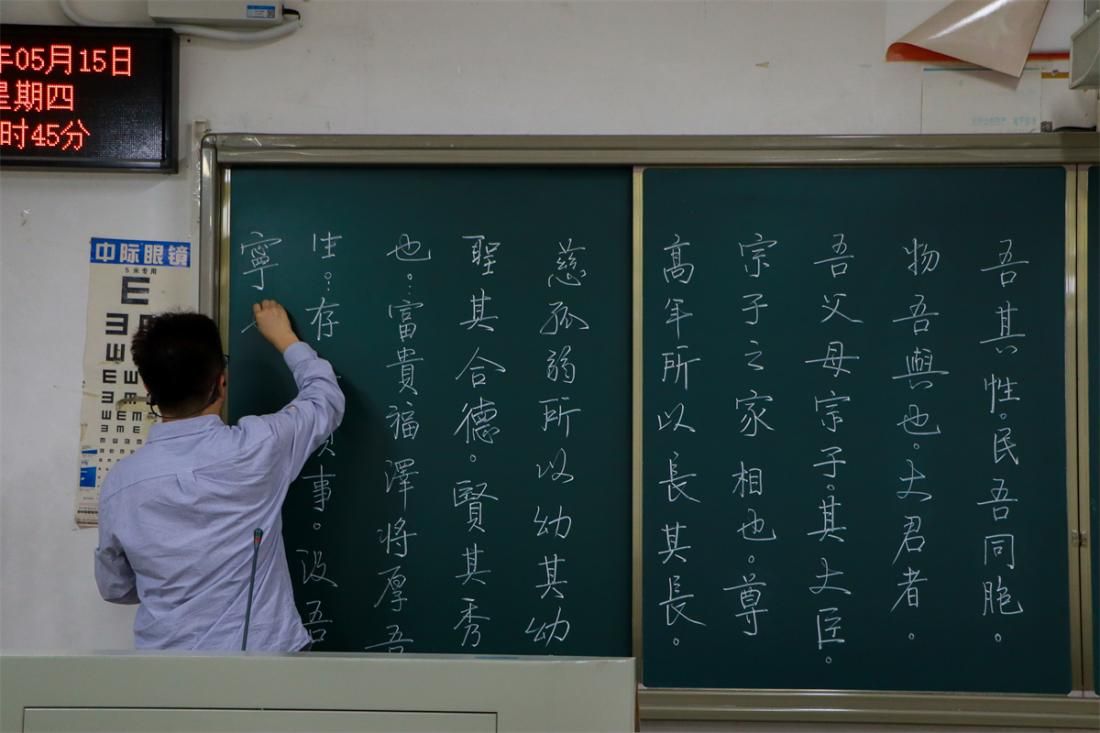 年05月15日
星期四
时45分
中际眼镜
5米专用
吾其性。民吾同胞。
物吾與也。大君者。
吾父母宗子。其大臣。
宗子之家相也。尊
高年所以長其長。
慈孤弱所以幼其幼
聖其合德。賢其秀
也。富貴福澤將厚吾
生。存事。没吾
寧